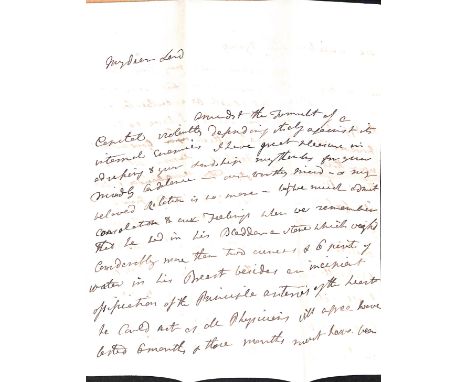 My dear Lord
Amidst the Tumult of a
Capital violently defending itself against its
internal enemies I have great pleasure in
& your Lordship my thanks for your
friendly Condolence — our worthy friend — & my
beloved Relation is no more — We must admit
consolation & our Feelings when we remember
that he had in his Bladder a stone which weighed
Considerably more than two ounces & 6 pints of
water in his Breast besides an incipient
ossification of the Principle arteries of the heart
he Could not as all Physicians will agree have
lasted 6 months & those months must have been